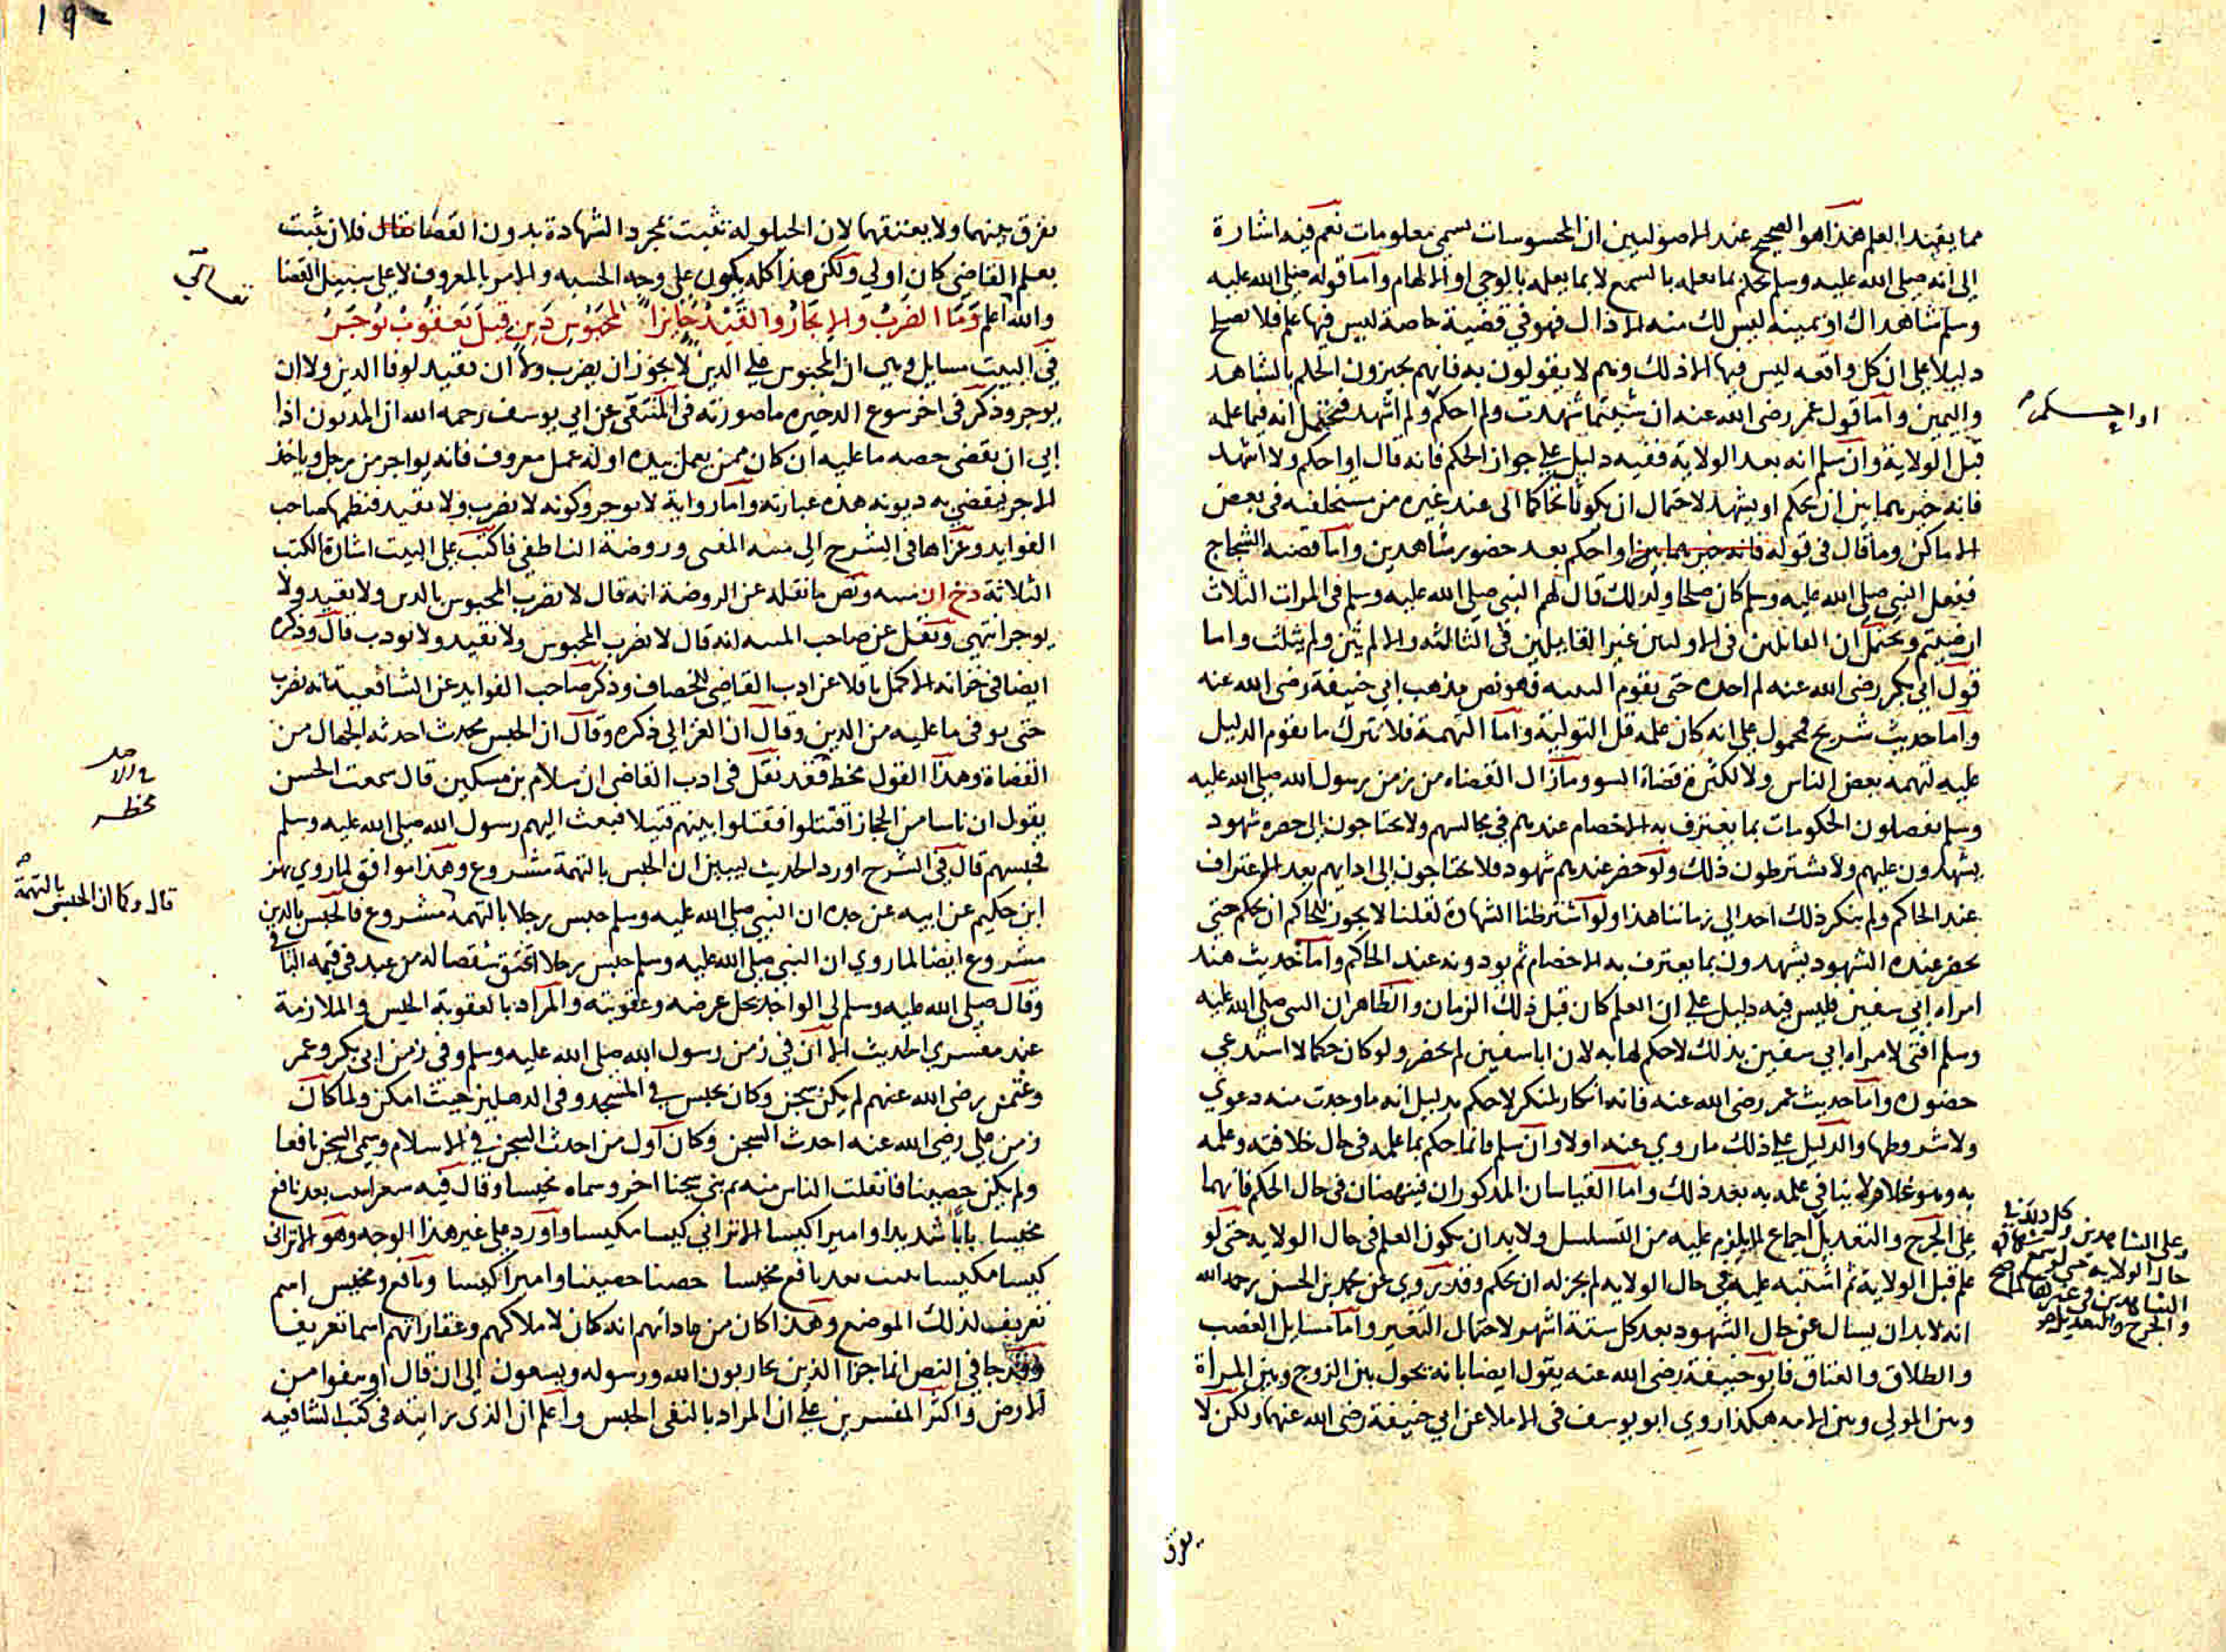 مما يفيد العلم هذا هو الصحيح عند الاصوليين ان المحسوسات تسمى معلومات نعم فيه اشارة
الى انه صلى الله عليه وسلم يحكم بما يعلمه بالسمع لا بما يعلمه بالوحي او الالهام واما قوله صلى الله عليه
وسلم شاهداك او يمينه ليس لك منه الا ذاك فهو في قضية خاصة ليس فيها علم فلا يصلح
دليلا على ان كل واقعه ليس فيها الا ذلك وهم لا يقولون به فانهم يجيزون الحكم بالشاهد
واليمين واما قول عمر رضى الله عنه ان شيتما شهدت ولم احكم ولم اشهد فيحتمل انه فيما علمه
او احكم
قبل الولاية وان سلم انه بعد الولاية ففيه دليل على جواز الحكم فانه قال او احكم ولا اشهد
فانه خيرهما بين ان يحكم او يشهد لاحتمال ان يكونا تحاكما الى عند غيره من مستخلفيه في بعض
الاماكن وما قال في قوله فانه خيرهما بين او احكم بعد حضور شاهدين واما قصة الشجاج
ففعل النبي صلى الله عليه وسلم كان صلحا ولذلك قال لهم النبي صلى الله عليه وسلم في المرات الثلاث
ارضيتم ويحتمل ان القائلين في الاوليين غير القايلين في الثالثه والا لم يثن ولم يثلث واما
قول ابي بكر رضى الله عنه لم احده حتى يقوم البينه فهو نص مذهب ابي حنيفة رضى الله عنه
واما حديث شريح فمحمول على انه كان علمه قبل التولية واما التهمة فلا تترك ما يقوم الدليل
عليه لتهمه بعض الناس ولا لكثرة قضاة السو وما زال القضاه من زمن رسول الله صلى الله عليه
وسلم يفصلون الحكومات بما يعترف به الاخصام عندهم في مجالسهم ولا يحتاجون الى حضره شهود
يشهدون عليهم ولا يشترطون ذلك ولو حضر عندهم شهود فلا يحتاجون الى ادايهم بعد الاعتراف
عند الحاكم ولم ينكر ذلك احد الى زماننا هذا ولو اشترطنا الشهادة لقلنا لا يجوز للحاكم ان يحكم حتى
يحضر عنده الشهود يشهدون بما يعترف به الاخصام ثم يودونه عند الحاكم واما حديث هند
امراه ابي سفين فليس فيه دليل على ان العلم كان قبل ذلك الزمان والظاهر ان النبي صلى الله عليه
وسلم افتى لامراه ابي سفين بذلك لا حكم لها به لان ابا سفين لم يحضر ولو كان حكما لا استدعي
حضوره واما حديث عمر رضى الله عنه فانه انكار لمنكر لا حكم بدليل انه ما وجدت منه دعوي
ولا شروطها والدليل على ذلك ما روي عنه اولا وان سلم فانما حكم بما علمه في حال خلافته وعلمه
به وهو غلام لا ينافي علمه به بعد ذلك واما القياسان المذكوران فينهضان في حال الحكم فانهما
على الجرح والتعديل اجماع لما يلزم عليه من التسلسل ولا بد ان يكون العلم في حال الولايه حتى لو
علم قبل الولاية ثم اشتبه عليه في حال الولايه لم يجز له ان يحكم وقد روي عن محمد بن الحسن رحمه الله
انه لا بد ان يسال عن حال الشهود بعد كل ستة اشهر لاحتمال التغير واما مسايل الغصب
والطلاق والعتاق فابو حنيفة رضى الله عنه يقول ايضا بانه يحول بين الزوج وبين المراة
وبين المولى وبين الامه هكذا روي ابو يوسف في الاملا عن ابي حنيفة رضى الله عنهما ولكن لا
يفرق
يفرق بينهما ولا يعتقهما لان الحيلوله تثبت بمجرد الشهادة بدون القضا فلان تثبت
بعلم القاضى كان اولى ولكن هذا كله يكون على وجه الحسبه والامر بالمعروف لا على سبيل القضا
تعالى
والله اعلم وما الضرب والايجار والقيد جايزا لمحبوس دين قيل يعقوب يوجر
في البيت مسايل وهي ان المحبوس على الدين لا يجوز ان يضرب ولا ان يقيد لوفا الدين ولا ان
يوجر وذكر في اخر سوع الدخيره ما صورته في المنتقى عن ابي يوسف رحمه الله ان المديون اذا
ابي ان يقضى حصه ما عليه ان كان ممن يعمل بيده او له عمل معروف فانه يواجر من رجل وياخذ
الاجر ليقضي به ديونه هذه عبارته واما رواية لا يوجر وكونه لا يضرب ولا يقيد فنظمها صاحب
الفوايد وعزاها في الشرح الى منيه المفتى وروضة الناطفي فاكتب على البيت اشارة الكتب
الثلاثة دخ ان منيه ونص ما نقله عن الروضة انه قال لا يضرب المحبوس بالدين ولا يقيد ولا
يوجر انتهي ونقل عن صاحب المنيه انه قال لا يضرب المحبوس ولا يقيد ولا يودب قال وذكره
ايضا في خزانه الاكمل ناقلا عن ادب القاضي للخصاف وذكر صاحب الفوايد عن الشافعية انه يضرب
حتى يوفى ما عليه من الدين وقال ان الغزالي ذكره وقال ان الحبس محدث احدثه الجهال من
القضاة وهذا القول مخط فقد نقل في ادب القاضي ان سلام بن مسكين قال سمعت الحسن
يقول ان ناسا من الحجاز اقتتلوا فقتلوا بينهم قتيلا فبعث اليهم رسول الله صلى الله عليه وسلم
فحبسهم قال في الشرح اورد الحديث ليبين ان الحبس بالتهمة مشروع وهذا موافق لما روي بهز
ابن حكيم عن ابيه عن جده ان النبي صلى الله عليه وسلم حبس رجلا بالتهمه مشروع فالحبس بالدين
قال وكما ان الحبس بالتهمة
مشروع ايضا لما روي ان النبي صلى الله عليه وسلم حبس رجلا اعتق شقصا له من عبد في قيمه الباقي
وقال صلى الله عليه وسلم لي الواجد يحل عرضه وعقوبته والمراد بالعقوبة الحبس والملازمة
عند مفسري الحديث الا ان في زمن رسول الله صلى الله عليه وسلم وفي زمن ابي بكر وعمر
وعثمن رضى الله عنهم لم يكن سجن وكان يحبس في المسجد وفي الدهليز حيث امكن ولما كان
زمن علي رضى الله عنه احدث السجن وكان اول من احدث السجن في الاسلام وسمى السجن نافعا
ولم يكن حصينا فانفلت الناس منه ثم بني سجنا اخر وسماه مخيسا وقال فيه شعرا بنيت بعد نافع
مخيسا بابا شديدا واميرا كيسا الا تراني كيسا مكيسا واورد على غير هذا الوجه وهو الا تراني
كيسا مكيسا بنيت بعد نافع مخيسا حصنا حصينا واميرا كيسا ونافع ومخيس اسم
تعريف لذلك الموضع وهذا كان من عاداتهم انه كان لاملاكهم وعقاراتهم اسما تعريف
وقد جا في النص انما جزا الذين يحاربون الله ورسوله ويسعون الى ان قال او ينفوا من
الارض واكثر المفسرين على ان المراد بالنفى الحبس واعلم ان الذى رايته في كتب الشافعيه